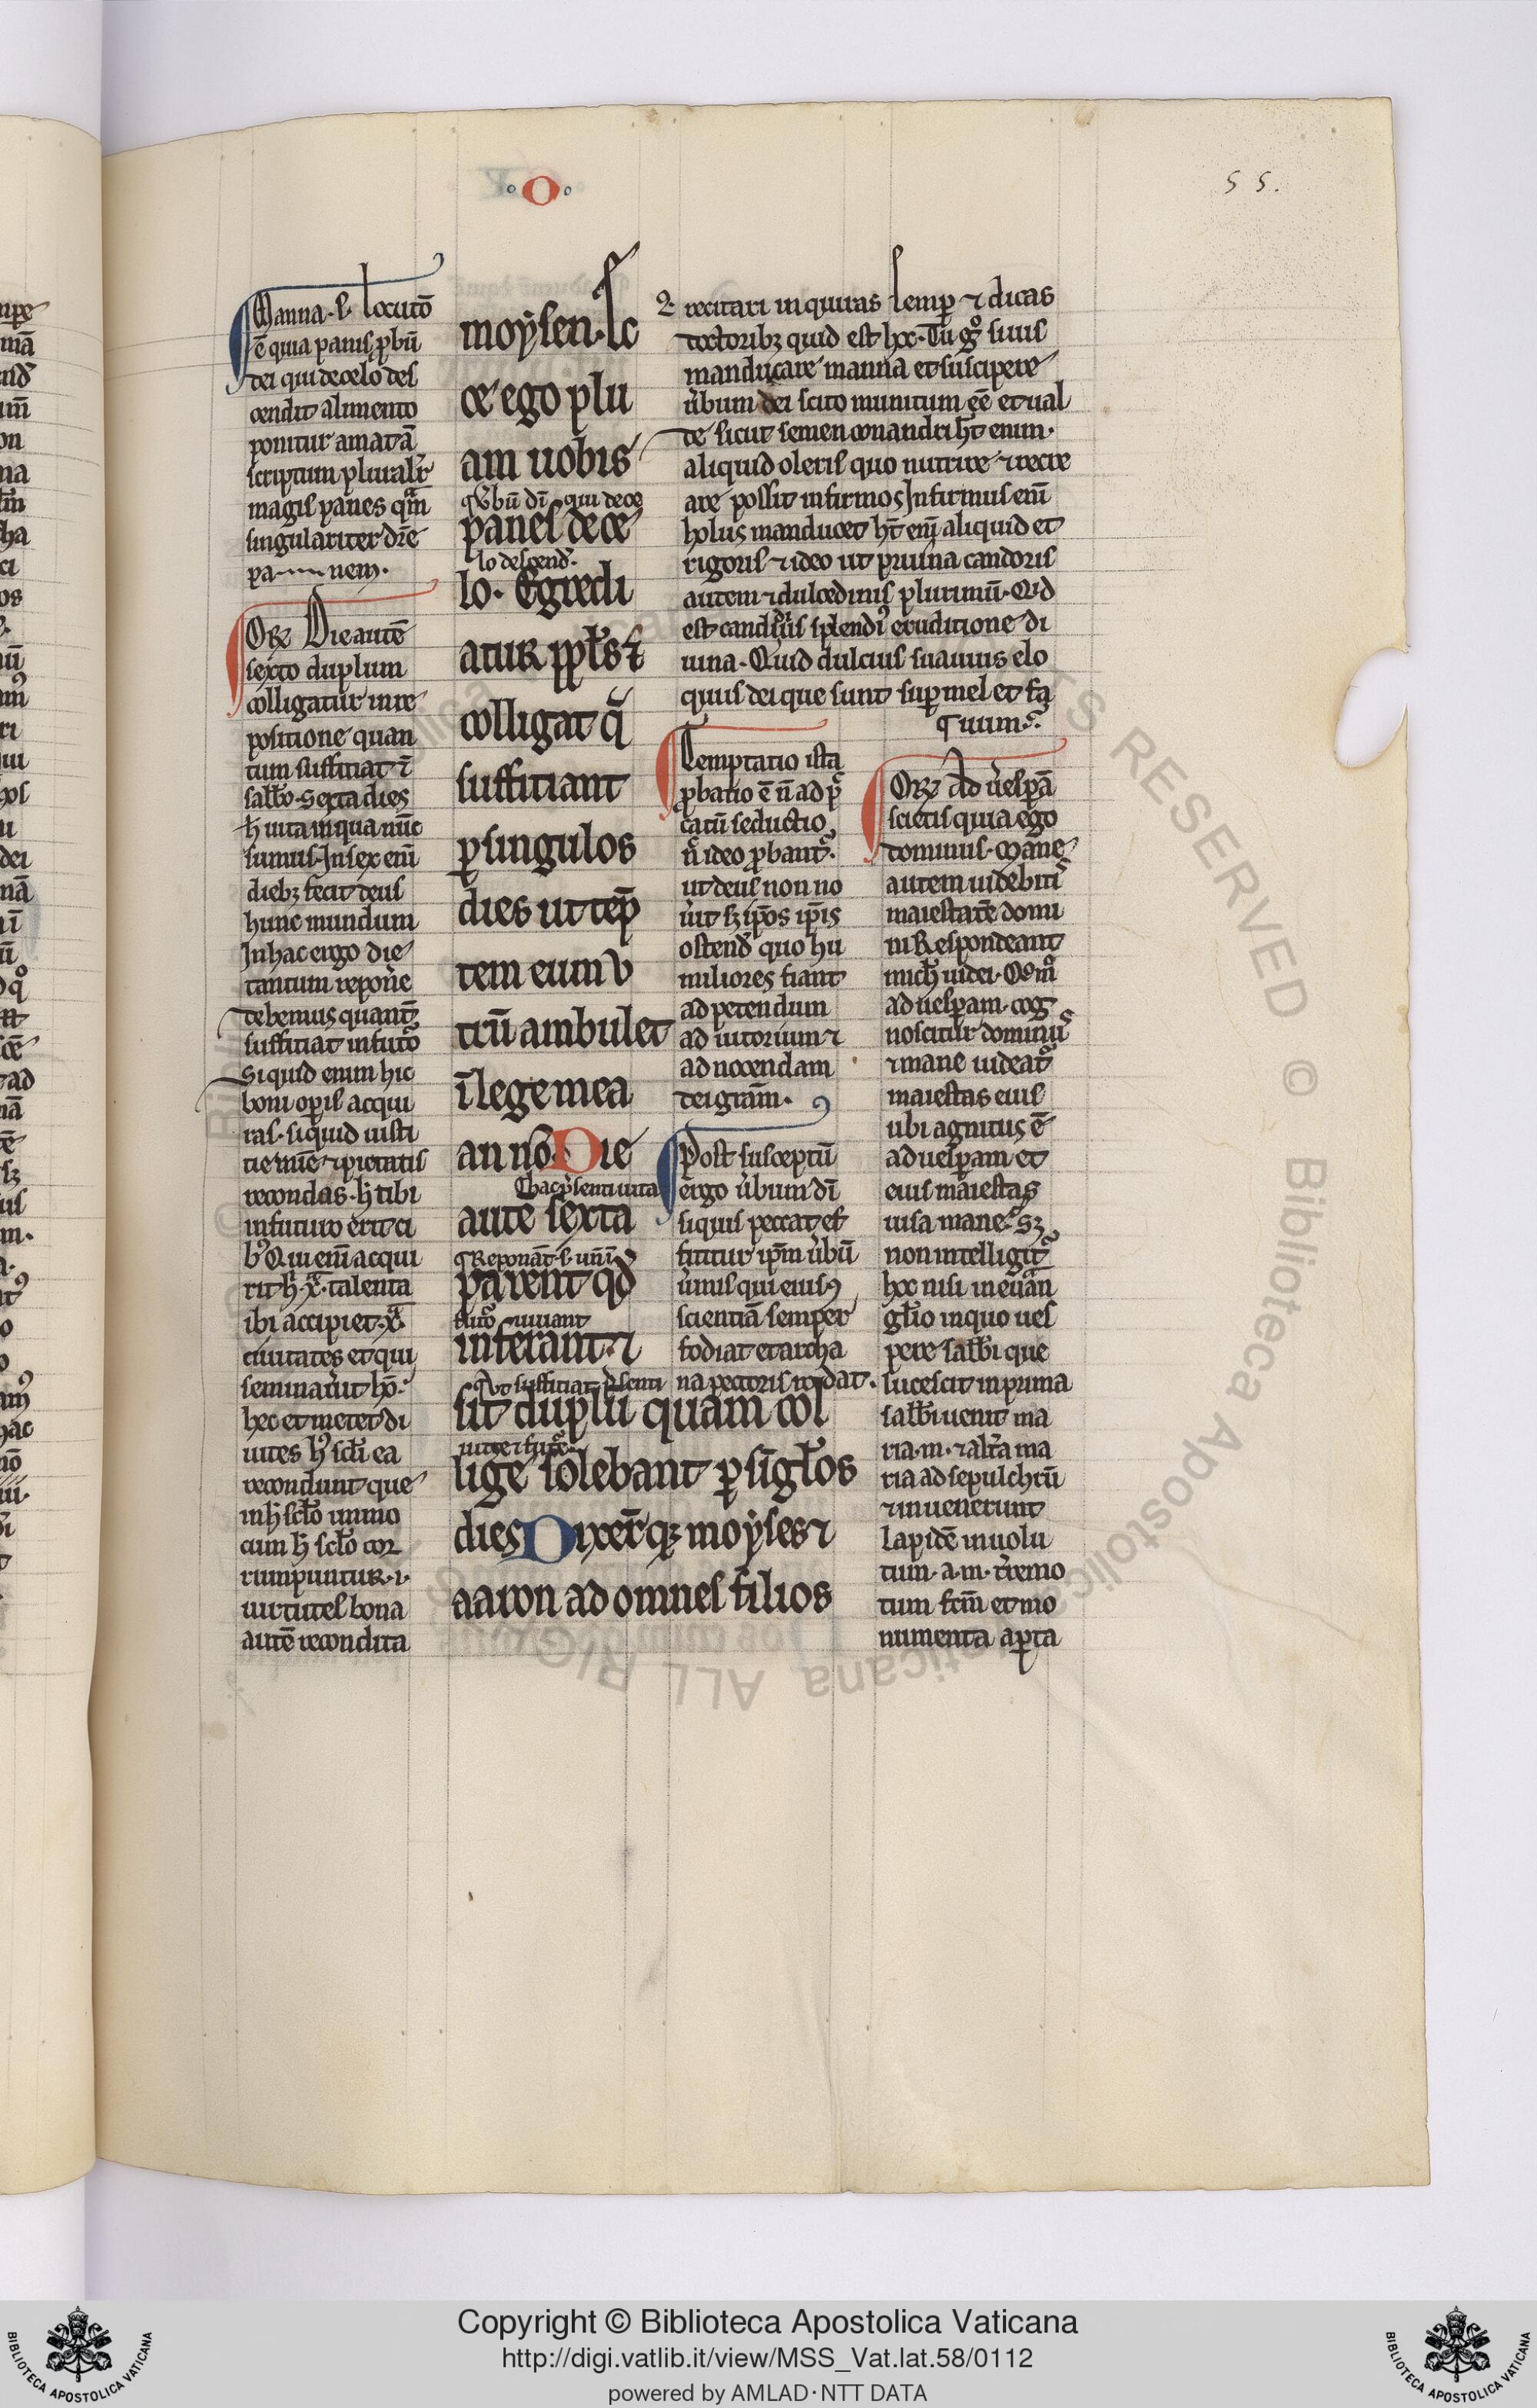 .O.
55.
Manna .s. Locutō
ē quia panis ꝑ ubū
dei qui de celo des
cendit alimento
ponitur amatā
scriptum pluralr̄
magis panes qm̄
singulariter dr̄e
pa nem.
Orꝫ Die autē
sexto duplum
colligatur in re
positione quan
tum suffitiat ī
sabbo. Sexta dies
h̄ uita in qua nūc
sumus. In sex enī
diebꝫ fecit deus
hunc mundum
In hac ergo die
tantum repon̄e
debemus quant̄
suffitiat in futo
Si quid enim hic
boni opis acqui
ras. si quid iusti
tie mīe ⁊ pietatis
recondas. h̄ tibi
in futuro erit ci
b9 Qui enī acqui
rit h̄ .x. talenta
ibi accipiet .x.
ciuitates et qui
seminauit ho.
hec et metet di
uites h9 scli ea
recondunt que
in h̄ sclo immo
cum h̄ sclo cor
rumpuntur .i.
uirtutes bona
autē recondita
moysen. Ec
ce ego plu
am uobis
ubū di qui de ce
panes de ce
lo descend.
lo. Egredi
atur ppls ⁊
colligat q̄
suffitiant
ꝑ singulos
dies ut tēp
tem eum u
trū ambulet
ī lege mea
an nō. Die
hac p̄senti uita
autē sexta
Reponāt .s. unī
parent qd
futo uiuant
inferant. ⁊
Vt suffitiat p̄senti
sit duplū quam col
uite ⁊ future
lige solebant ꝑ singlos
dies Dixer̄qꝫ moyses ⁊
aaron ad omnes filios
recitari inquiras semp ⁊ dicas
doctoribꝫ quid est hoc. Tu go si uis
manducare manna et suscipere
uerbum dei scito munitum eē et ual
de sicut semen coriandri ht enim
aliquid oleris quo nutrire ⁊ recre
are possit infirmos Infirmus enī
holus manducet ht enī aliquid et
rigoris ⁊ ideo ut pruina candoris
autem ⁊ dulcedinis plurimū. Qid
est candidius splendi9 eruditione di
uina. Quid dulcius suauius elo
quiis dei que sunt sup mel et fa
uum.
Temptatio ista
ꝓbatio ē n̄ ad pec
catū seductio
n̄ ideo ꝓbant̄.
ut deus non no
uit sꝫ ipos ipis
ostend quo hu
miliores fiant
ad petendum
ad iutorium ⁊
ad noscendam
dei gram.
Post susceptū
ergo ubum di
si quis peccat ef
ficitur ipm ubū
uermis qui eius 9
scientiā semper
fodiat et archa
na pectoris rodat.
Orꝫ Ad uesꝑā
scietis quia ego
dominus. Mane
autem uidebiti9
maiestatē domi
ni Respondeant
michi uidei. Qom̄
ad uesꝑam. cog
noscitur dominus
⁊ mane uideat̄
maiestas eius
ubi agnitus ē
ad uesꝑam et
eius maiestas
uisa mane. Sꝫ
non intelligit̄
hec nisi in euan
glio in quo ues
pere sabbi que
lucescit in prima
sabbi uenit ma
ria .m. ⁊ altā ma
ria ad sepulchrū
⁊ inuenerunt
Lapidē inuolu
tum .a. m. t̄remo
tum fcm̄ et mo
numenta aꝑta
Copyright © Biblioteca Apostolica Vaticana
http://digi.vatlib.it/view/MSS_Vat.lat.58/0112
powered by AMLAD·NTT DATA
BIBLIOTECA APOSTOLICA VATICANA
BIBLIOTECA APOSTOLICA VATICANA